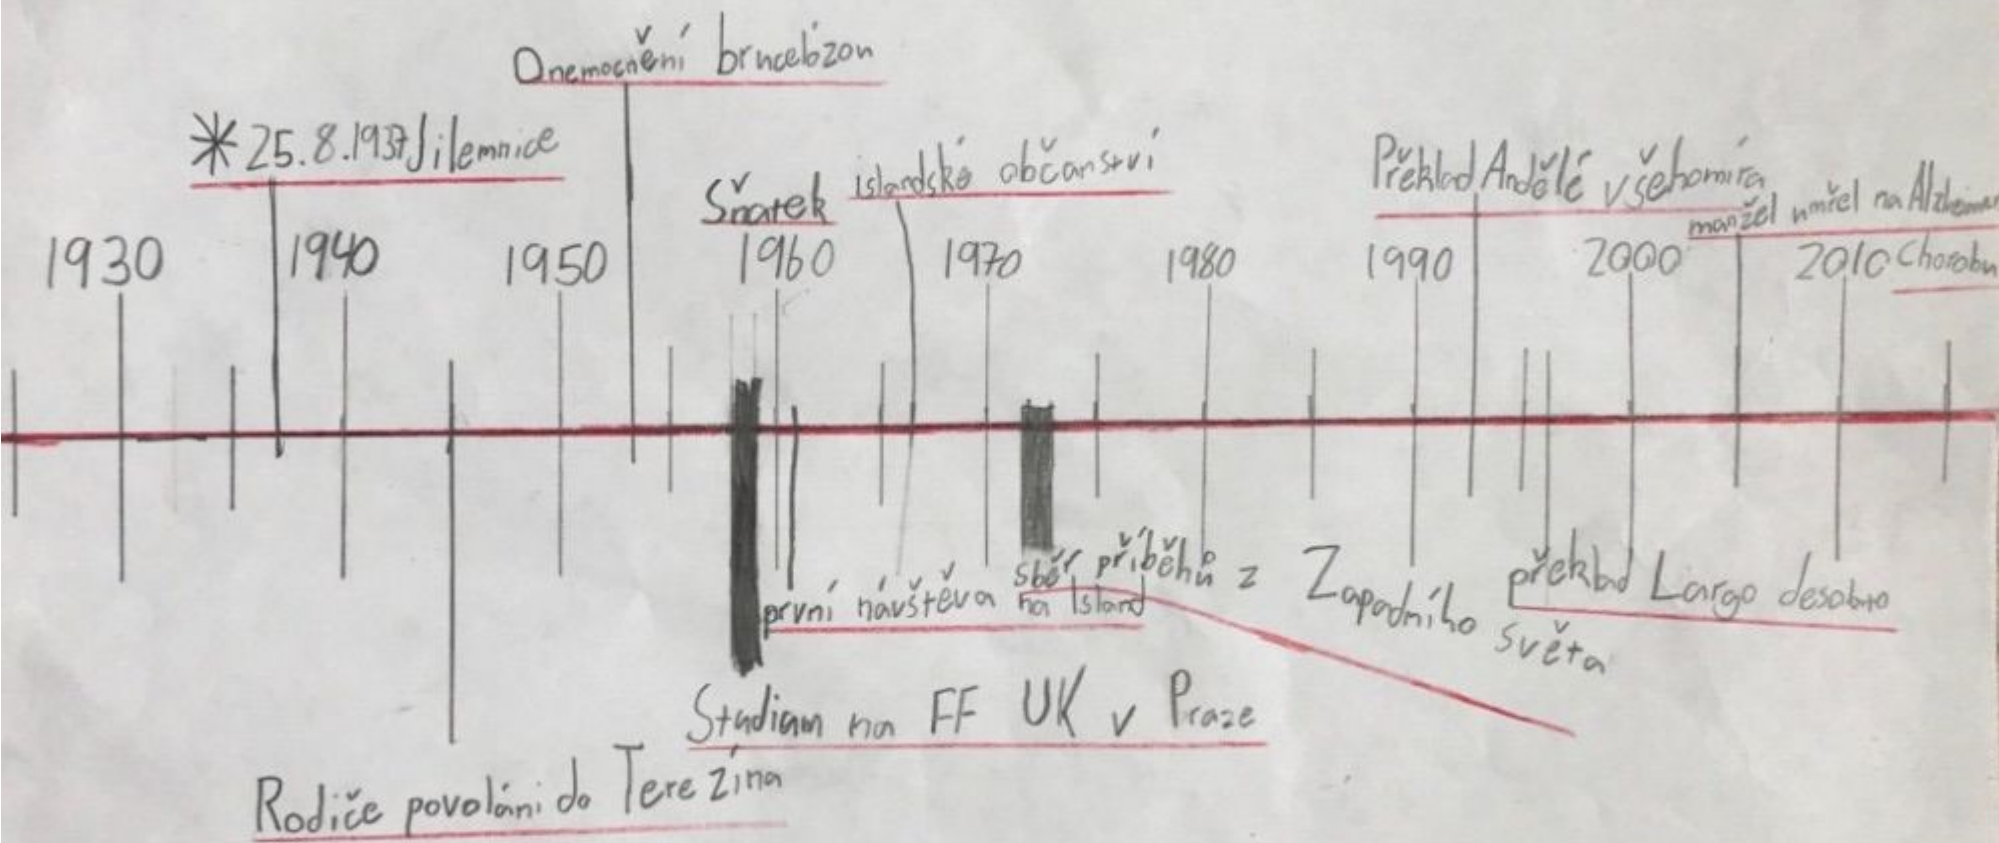 Onemocnění brucelózou
* 25.8.1937 Jilemnice
Sňatek
islandské občanství
Překlad Andělé všehomíra
manžel umřel na Alzheimer
Chorobu
1930 1940 1950 1960 1970 1980 1990 2000 2010
sběr příběhů z Zapadního
světa
první návštěva na Island
překlad Largo desolato
Studium na FF UK v Praze
Rodiče povoláni do Terezína